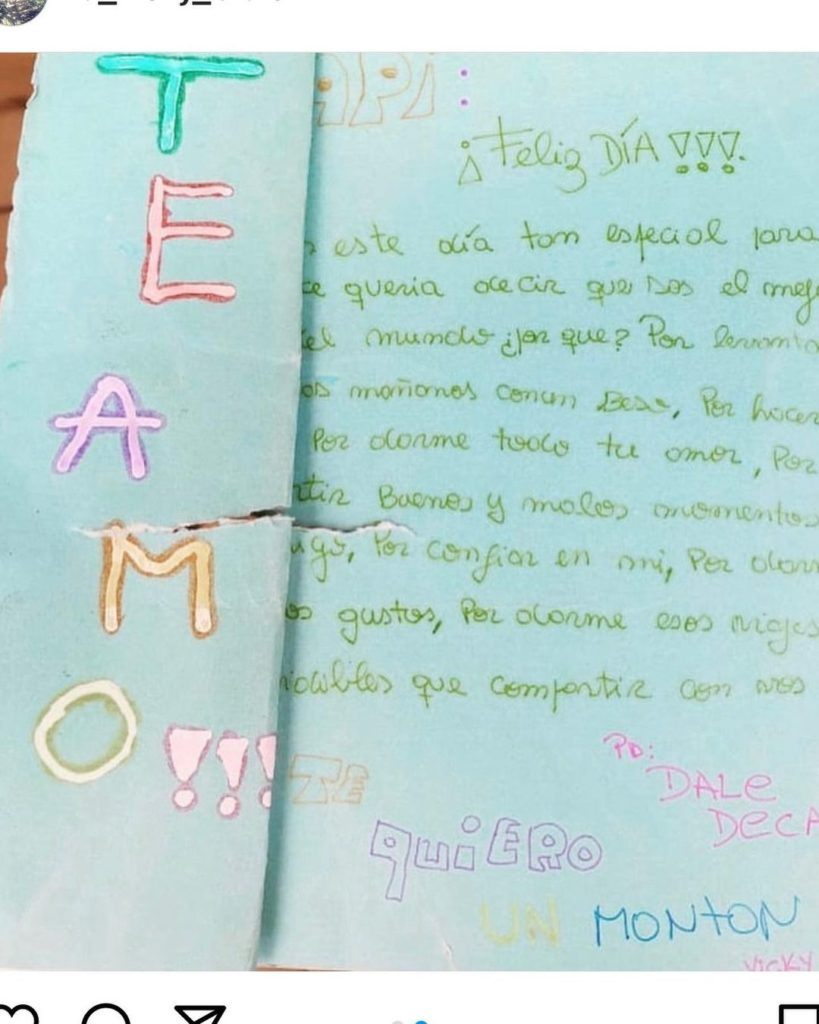 T
E
A
M
O
!!!
API:
¡Feliz DÍA !!!.
este día tan especial para
queria decir que sos el mej
el mundo ¿por que? Por levanta
mañanas con un Beso, Por hacer
Por darme todo tu amor, Por
rtir Buenos y malos momentos
igo, Por confiar en mi, Por darm
os gustos, Por darme esos viajes
idables que compartir con vos
TE
QUIERO
UN MONTON
PD:
DALE
DECA
VICKY